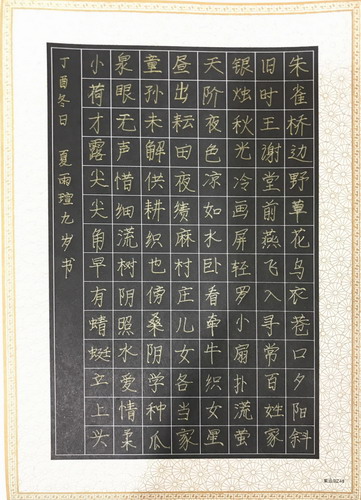 朱雀桥边野草花乌衣巷口夕阳斜
旧时王谢堂前燕飞入寻常百姓家
银烛秋光冷画屏轻罗小扇扑流萤
天阶夜色凉如水卧看牵牛织女星
昼出耘田夜绩麻村庄儿女各当家
童孙未解供耕织也傍桑阴学种瓜
泉眼无声惜细流树阴照水爱情柔
小荷才露尖尖角早有蜻蜓立上头
丁酉冬日 夏雨瑄九岁书